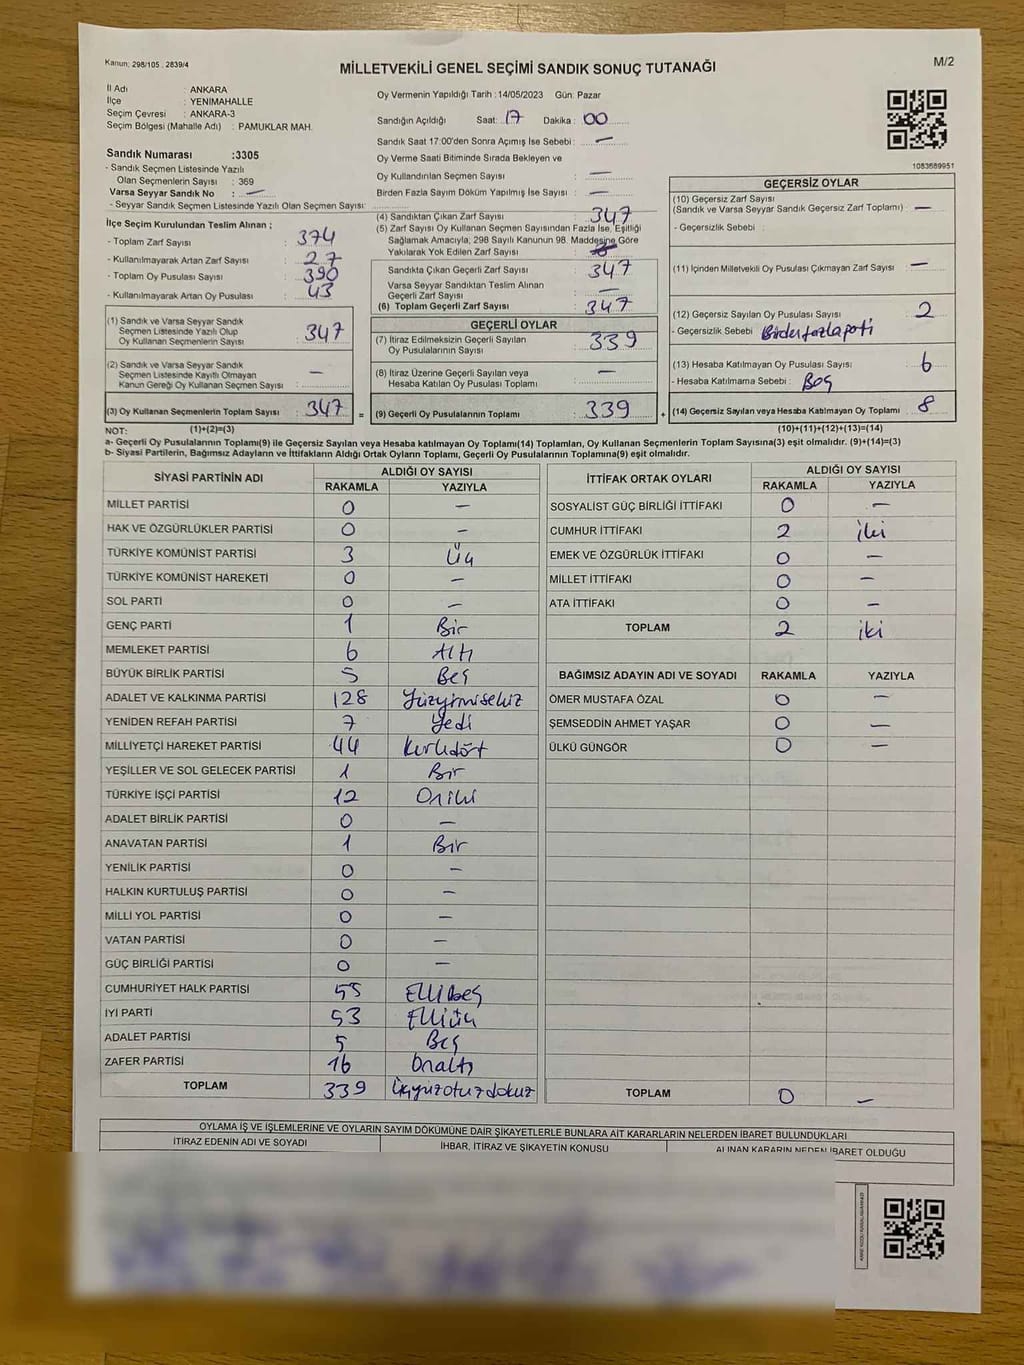 Kanun; 298/105 , 2839/4
MİLLETVEKİLİ GENEL SEÇİMİ SANDIK SONUÇ TUTANAĞI
M/2
İl Adı : ANKARA
İlçe : YENİMAHALLE
Seçim Çevresi : ANKARA-3
Seçim Bölgesi (Mahalle Adı) : PAMUKLAR MAH.
Sandık Numarası :3305
- Sandık Seçmen Listesinde Yazılı
Olan Seçmenlerin Sayısı : 369
Varsa Seyyar Sandık No : —
- Seyyar Sandık Seçmen Listesinde Yazılı Olan Seçmen Sayısı:
Oy Vermenin Yapıldığı Tarih :14/05/2023 Gün: Pazar
Sandığın Açıldığı Saat: 17 Dakika : 00
Sandık Saat 17:00'den Sonra Açımış İse Sebebi : —
Oy Verme Saati Bitiminde Sırada Bekleyen ve
Oy Kullandırılan Seçmen Sayısı : —
Birden Fazla Sayım Döküm Yapılmış İse Sayısı : —
1083689951
İlçe Seçim Kurulundan Teslim Alınan ;
- Toplam Zarf Sayısı : 374
- Kullanılmayarak Artan Zarf Sayısı : 27
- Toplam Oy Pusulası Sayısı : 390
- Kullanılmayarak Artan Oy Pusulası : 43
(1) Sandık ve Varsa Seyyar Sandık
Seçmen Listesinde Yazılı Olup
Oy Kullanan Seçmenlerin Sayısı : 347
(2) Sandık ve Varsa Seyyar Sandık
Seçmen Listesinde Kayıtlı Olmayan
Kanun Gereği Oy Kullanan Seçmen Sayısı : —
(3) Oy Kullanan Seçmenlerin Toplam Sayısı : 347 =
(4) Sandıktan Çıkan Zarf Sayısı : 347
(5) Zarf Sayısı Oy Kullanan Seçmen Sayısından Fazla İse, Eşitliği
Sağlamak Amacıyla; 298 Sayılı Kanunun 98. Maddesine Göre
Yakılarak Yok Edilen Zarf Sayısı :
Sandıkta Çıkan Geçerli Zarf Sayısı : 347
Varsa Seyyar Sandıktan Teslim Alınan
Geçerli Zarf Sayısı : —
(6) Toplam Geçerli Zarf Sayısı : 347
GEÇERLİ OYLAR
(7) İtiraz Edilmeksizin Geçerli Sayılan
Oy Pusulalarının Sayısı : 339
(8) İtiraz Üzerine Geçerli Sayılan veya
Hesaba Katılan Oy Pusulası Toplamı : —
(9) Geçerli Oy Pusulalarının Toplamı : 339 +
GEÇERSİZ OYLAR
(10) Geçersiz Zarf Sayısı
(Sandık ve Varsa Seyyar Sandık Geçersiz Zarf Toplamı) : —
- Geçersizlik Sebebi :
(11) İçinden Milletvekili Oy Pusulası Çıkmayan Zarf Sayısı : —
(12) Geçersiz Sayılan Oy Pusulası Sayısı : 2
- Geçersizlik Sebebi : Birden fazla parti
(13) Hesaba Katılmayan Oy Pusulası Sayısı : 6
- Hesaba Katılmama Sebebi : Boş
(14) Geçersiz Sayılan veya Hesaba Katılmayan Oy Toplamı : 8
NOT: (1)+(2)=(3)
(10)+(11)+(12)+(13)=(14)
a- Geçerli Oy Pusulalarının Toplamı(9) ile Geçersiz Sayılan veya Hesaba katılmayan Oy Toplamı(14) Toplamları, Oy Kullanan Seçmenlerin Toplam Sayısına(3) eşit olmalıdır. (9)+(14)=(3)
b- Siyasi Partilerin, Bağımsız Adayların ve İttifakların Aldığı Ortak Oyların Toplamı, Geçerli Oy Pusulalarının Toplamına(9) eşit olmalıdır.
SİYASİ PARTİNİN ADI ALDIĞI OY SAYISI
RAKAMLA YAZIYLA
MİLLET PARTİSİ 0 —
HAK VE ÖZGÜRLÜKLER PARTİSİ 0 —
TÜRKİYE KOMÜNİST PARTİSİ 3 Üç
TÜRKİYE KOMÜNİST HAREKETİ 0 —
SOL PARTİ 0 —
GENÇ PARTİ 1 Bir
MEMLEKET PARTİSİ 6 Altı
BÜYÜK BİRLİK PARTİSİ 5 Beş
ADALET VE KALKINMA PARTİSİ 128 Yüzyirmisekiz
YENİDEN REFAH PARTİSİ 7 Yedi
MİLLİYETÇİ HAREKET PARTİSİ 44 Kırkdört
YEŞİLLER VE SOL GELECEK PARTİSİ 1 Bir
TÜRKİYE İŞÇİ PARTİSİ 12 Oniki
ADALET BİRLİK PARTİSİ 0 —
ANAVATAN PARTİSİ 1 Bir
YENİLİK PARTİSİ 0 —
HALKIN KURTULUŞ PARTİSİ 0 —
MİLLİ YOL PARTİSİ 0 —
VATAN PARTİSİ 0 —
GÜÇ BİRLİĞİ PARTİSİ 0 —
CUMHURİYET HALK PARTİSİ 55 Ellibeş
İYİ PARTİ 53 Elliüç
ADALET PARTİSİ 5 Beş
ZAFER PARTİSİ 16 Onaltı
TOPLAM 339 Üçyüzotuzdokuz
İTTİFAK ORTAK OYLARI ALDIĞI OY SAYISI
RAKAMLA YAZIYLA
SOSYALİST GÜÇ BİRLİĞİ İTTİFAKI 0 —
CUMHUR İTTİFAKI 2 iki
EMEK VE ÖZGÜRLÜK İTTİFAKI 0 —
MİLLET İTTİFAKI 0 —
ATA İTTİFAKI 0 —
TOPLAM 2 iki
BAĞIMSIZ ADAYIN ADI VE SOYADI RAKAMLA YAZIYLA
ÖMER MUSTAFA ÖZAL 0 —
ŞEMSEDDİN AHMET YAŞAR 0 —
ÜLKÜ GÜNGÖR 0 —
TOPLAM 0 —
OYLAMA İŞ VE İŞLEMLERİNE VE OYLARIN SAYIM DÖKÜMÜNE DAİR ŞİKAYETLERLE BUNLARA AİT KARARLARIN NELERDEN İBARET BULUNDUKLARI
İTİRAZ EDENİN ADI VE SOYADI İHBAR, İTİRAZ VE ŞİKAYETİN KONUSU ALINAN KARARIN NEDEN İBARET OLDUĞU